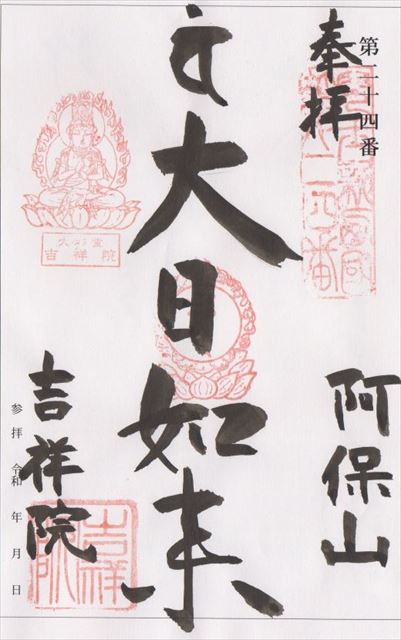 第二十四番
奉拝
阿保山
大日如来
吉祥院
参拝 令和 年 月 日
吉祥院
吉祥院